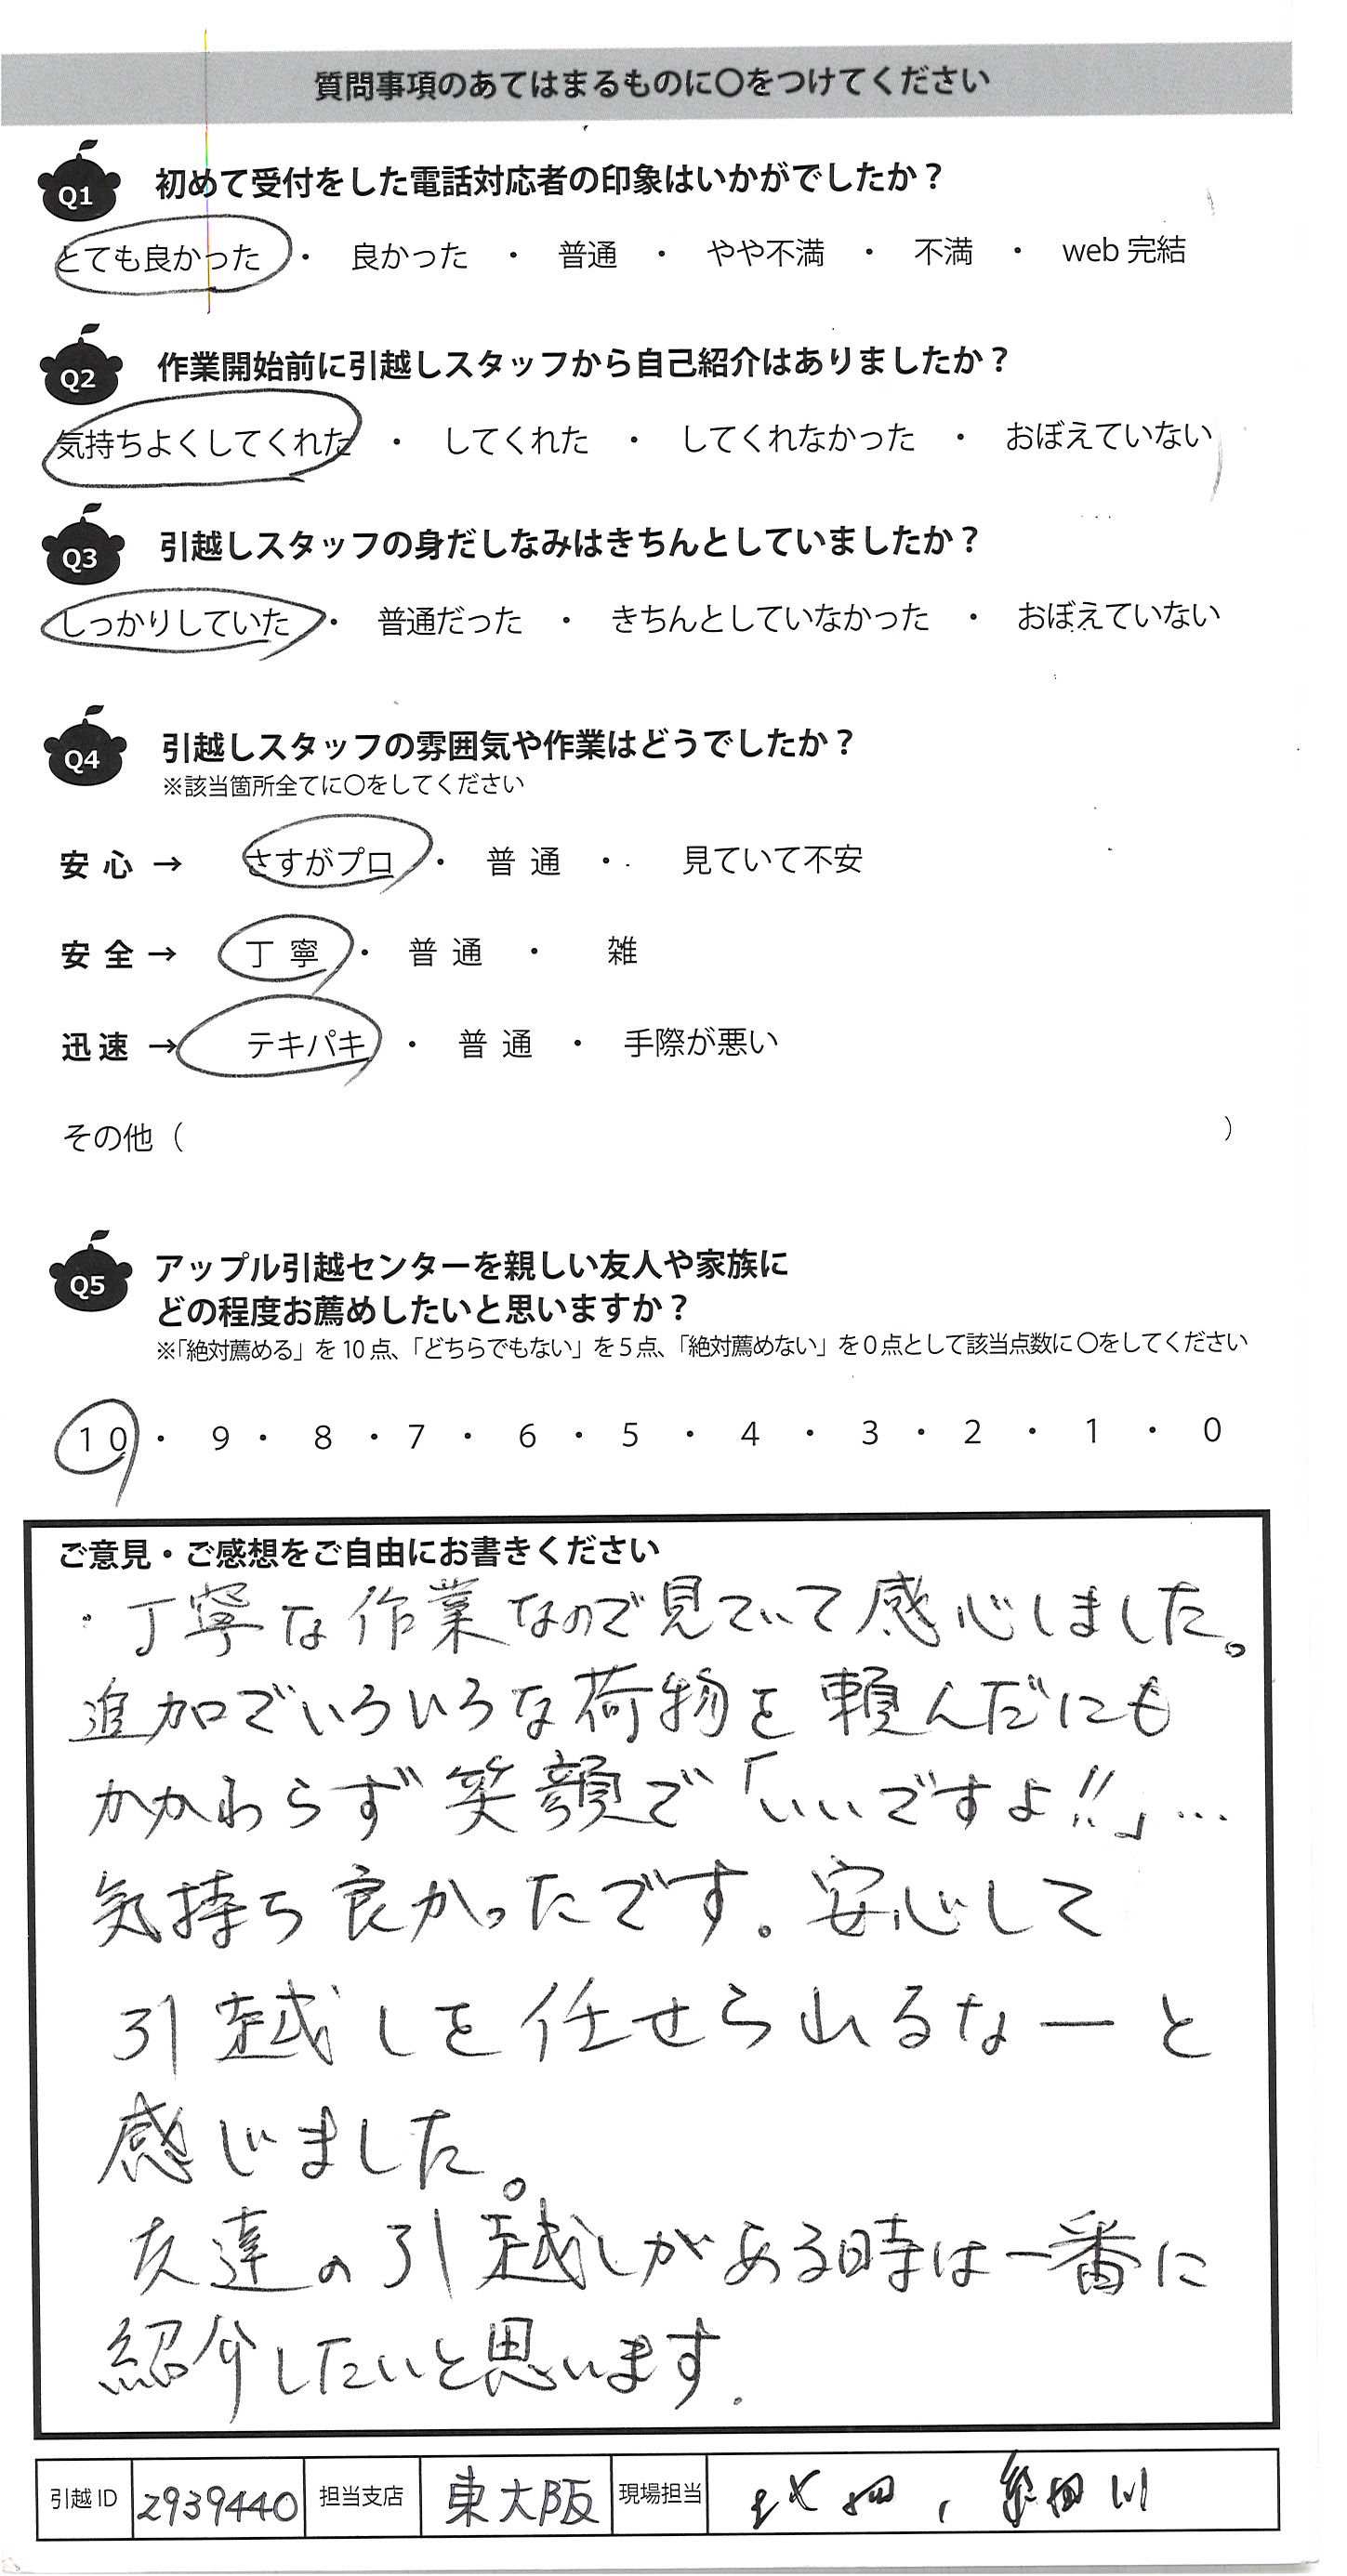 質問事項のあてはまるものに〇をつけてください
Q1 初めて受付をした電話対応者の印象はいかがでしたか？
とても良かった ・ 良かった ・ 普通 ・ やや不満 ・ 不満 ・ web 完結
Q2 作業開始前に引越しスタッフから自己紹介はありましたか？
気持ちよくしてくれた ・ してくれた ・ してくれなかった ・ おぼえていない
Q3 引越しスタッフの身だしなみはきちんとしていましたか？
しっかりしていた ・ 普通だった ・ きちんとしていなかった ・ おぼえていない
Q4 引越しスタッフの雰囲気や作業はどうでしたか？
※該当箇所全てに〇をしてください
安心 → さすがプロ ・ 普通 ・ 見ていて不安
安全 → 丁寧 ・ 普通 ・ 雑
迅速 → テキパキ ・ 普通 ・ 手際が悪い
その他（ ）
Q5 アップル引越センターを親しい友人や家族に
どの程度お薦めしたいと思いますか？
※「絶対薦める」を 10 点、「どちらでもない」を 5 点、「絶対薦めない」を 0 点として該当点数に 〇をしてください
10 ・ 9 ・ 8 ・ 7 ・ 6 ・ 5 ・ 4 ・ 3 ・ 2 ・ 1 ・ 0
ご意見・ご感想をご自由にお書きください
・丁寧な作業なので見ていて感心しました。
追加でいろいろな荷物を頼んだにも
かかわらず笑顔で「いいですよ!!」…
気持ち良かったです。安心して
引越しを任せられるなーと
感じました。
友達の引越しがある時は一番に
紹介したいと思います.
引越 ID 2939440 担当支店 東大阪 現場担当